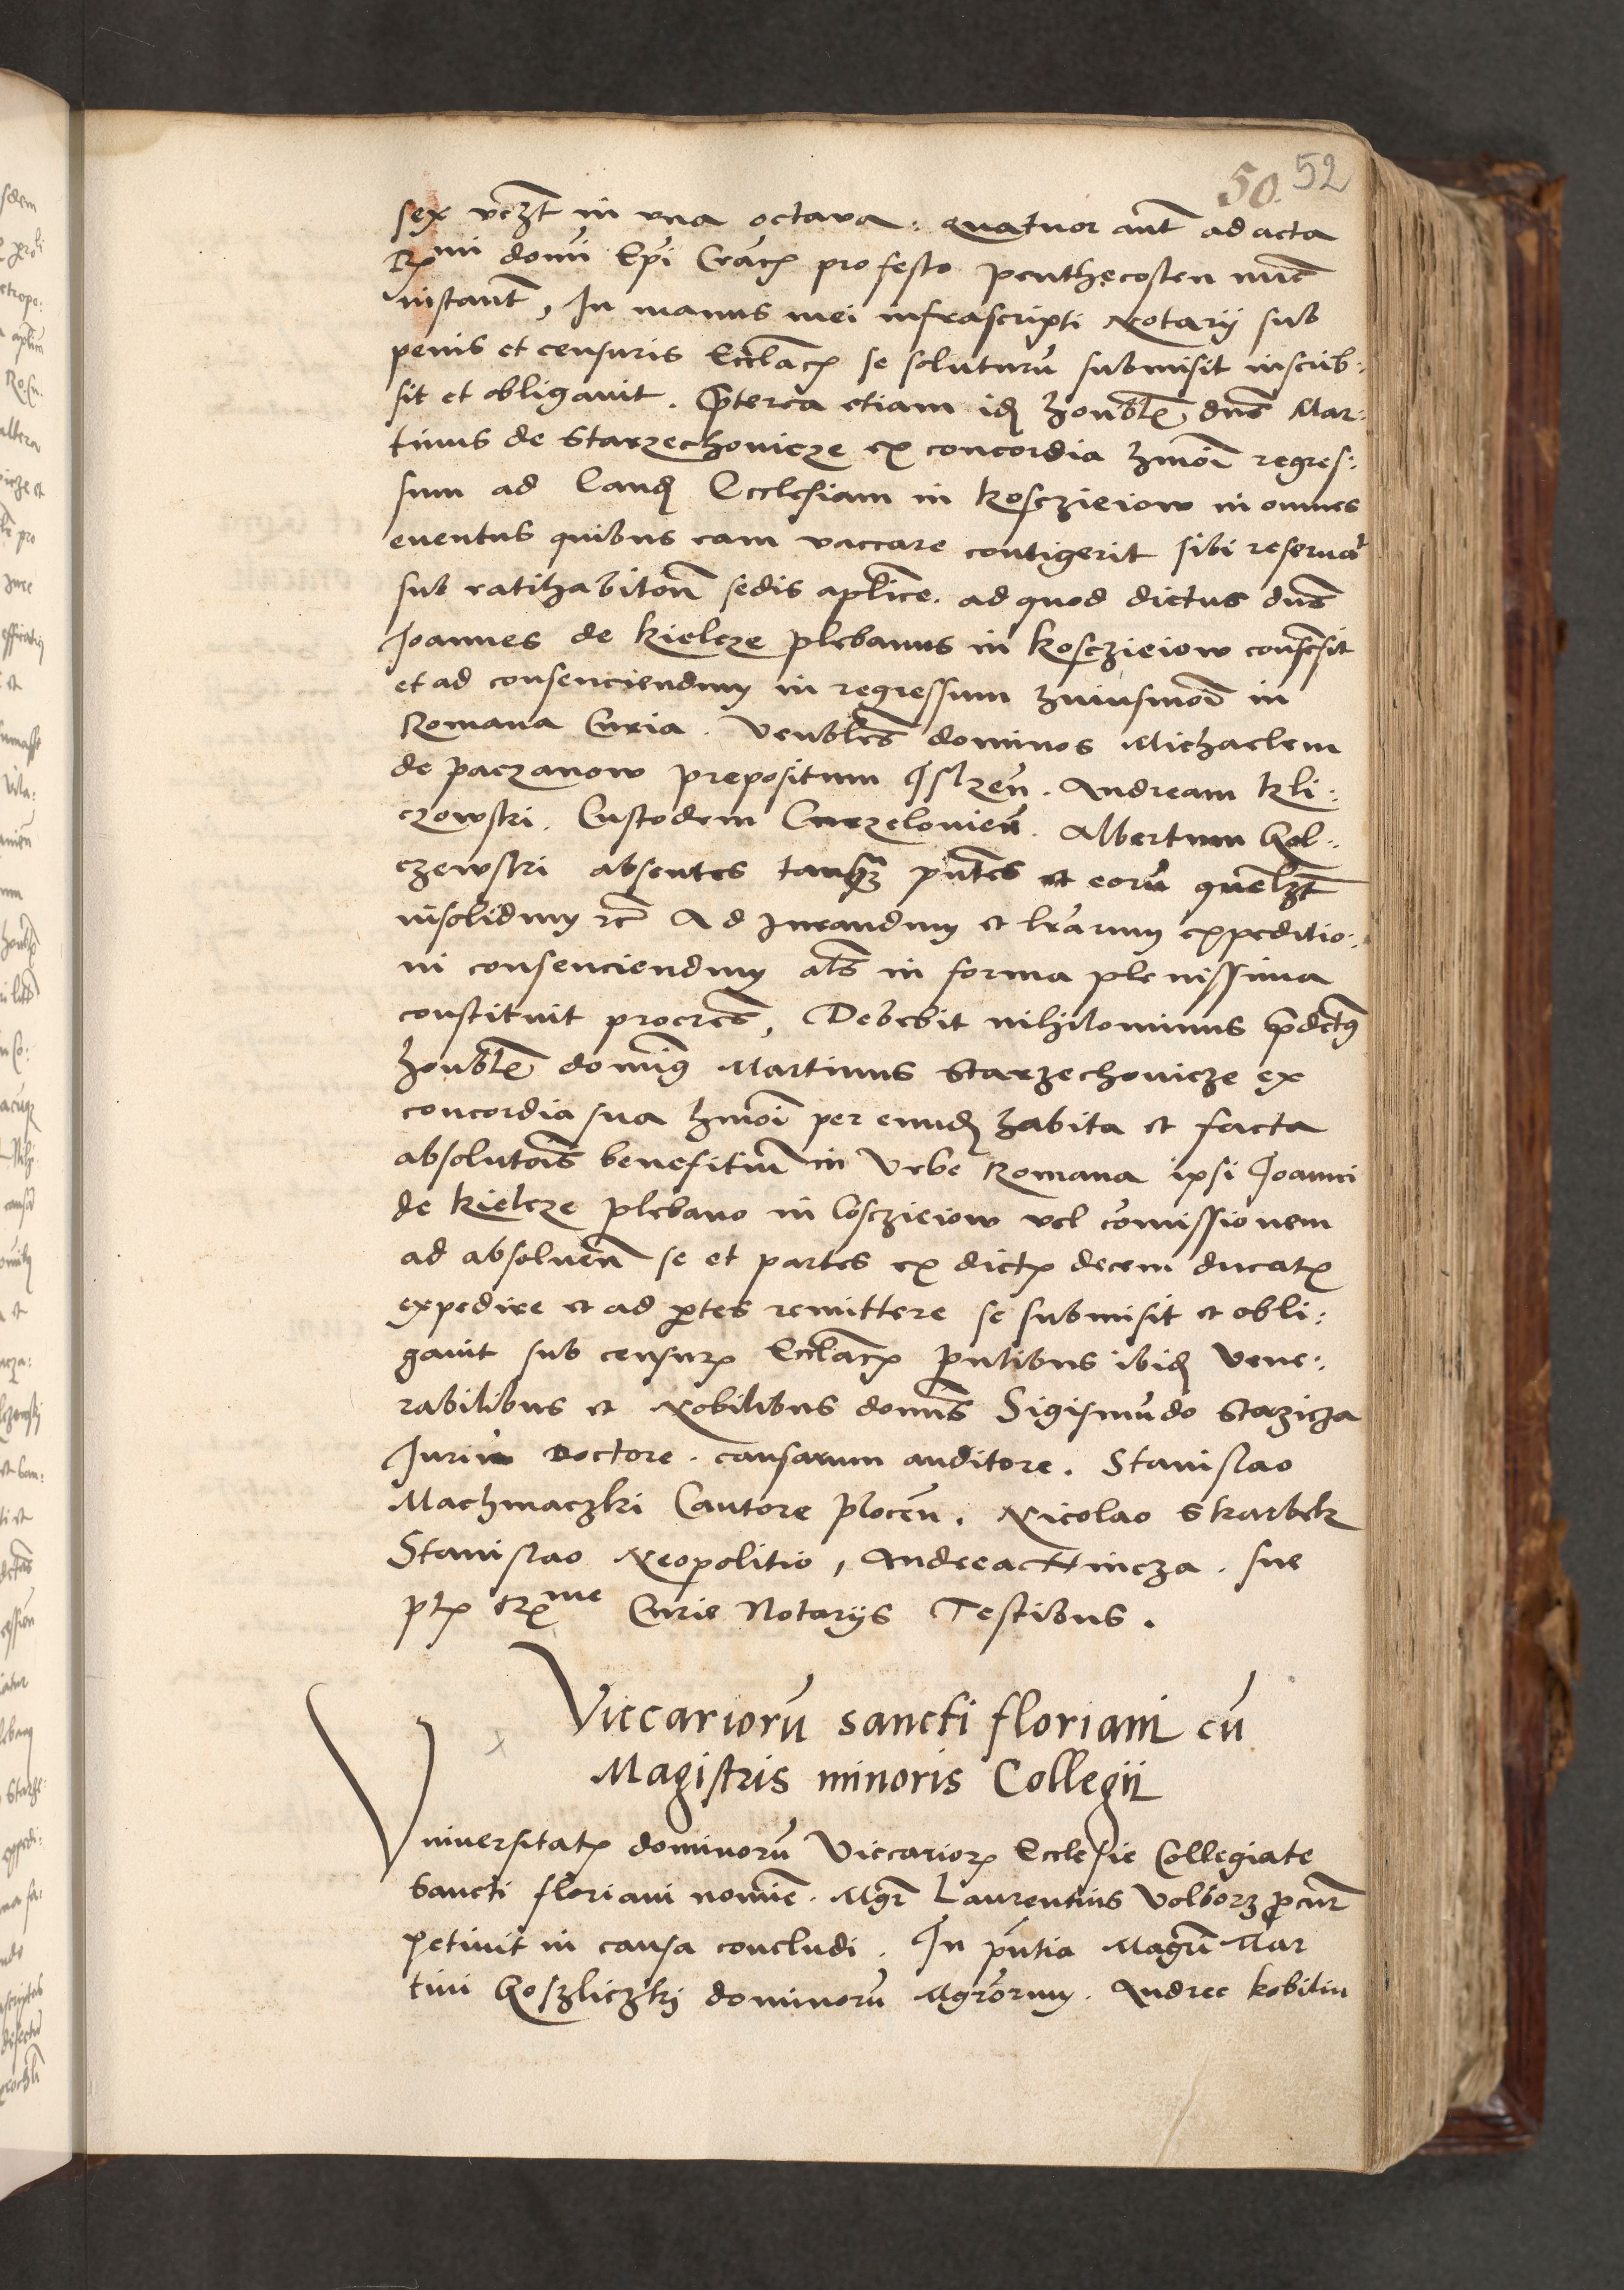 50. 52
sex vczt in vna octava: quatuor aut ad acta
Rmi domi Epi Crac pro festo penthecosten nuc
instant, In manus mei infrascripti Notarij sub
penis et censuris Ecclac se soluturu submisit inscrib:
sit et obligauit. Preterea etiam id honoble dns Mar:
tinus de Starzechouicze ex concordia hmoi regres:
sum ad eand Ecclesiam in Kosczieiow in omnes
euentus quibus eam vaccare contigerit sibi reserua
sub ratihabiton sedis aplice. ad quod dictus dns
Joannes de Kielcze plebanus in Kosczieiow consesit
et ad consenciendum in regressum huiusmoi in
Romana Curia. Venbles dominos Michaelem
de paczanow prepositum Islzen. Andream Kli:
czowski. Custodem Curzelouien. Albertum Gol:
czewski absentes tanq pntes et eoru quelzt
insolidum rc Ad Jurandum et lrarum expeditio:
ni consenciendum als in forma plenissima
constituit procres, Debebit nihilominus prdctus
honoble dominus Martinus Starzechouicze ex
concordia sua hmoi per eundem habita et facta
absolutois benefitiu in Vrbe Romana ipsi Joanni
de Kielcze plebano in Cosczieiow vel comissionem
ad absoluen se et partes ex dict decem ducat
expedire et ad ptes remittere se submisit et obli:
gauit sub censur Ecclac pntibus ibid Vene:
rabilibus et Nobilibus domis Sigismudo Stazicza
Juriu Doctore. causarum auditore. Stanislao
Machnaczki Cantore plocen. Nicolao Skarbek
Stanislao Neopolitio, Andrea Hincza. sue
pt Rme Curie Notarijs Testibus.
Viccarioru sancti floriani cu
Magistris minoris Collegii
Vniversitat dominoru Viccarior Ecclesie Collegiate
Sancti floriani nomie. Mgr Laurentius Volborz pcur
petiuit in causa concludi. In pntia Magri Mar
tini Goszliczki dominoru Mgrorum. Andree Kobilin